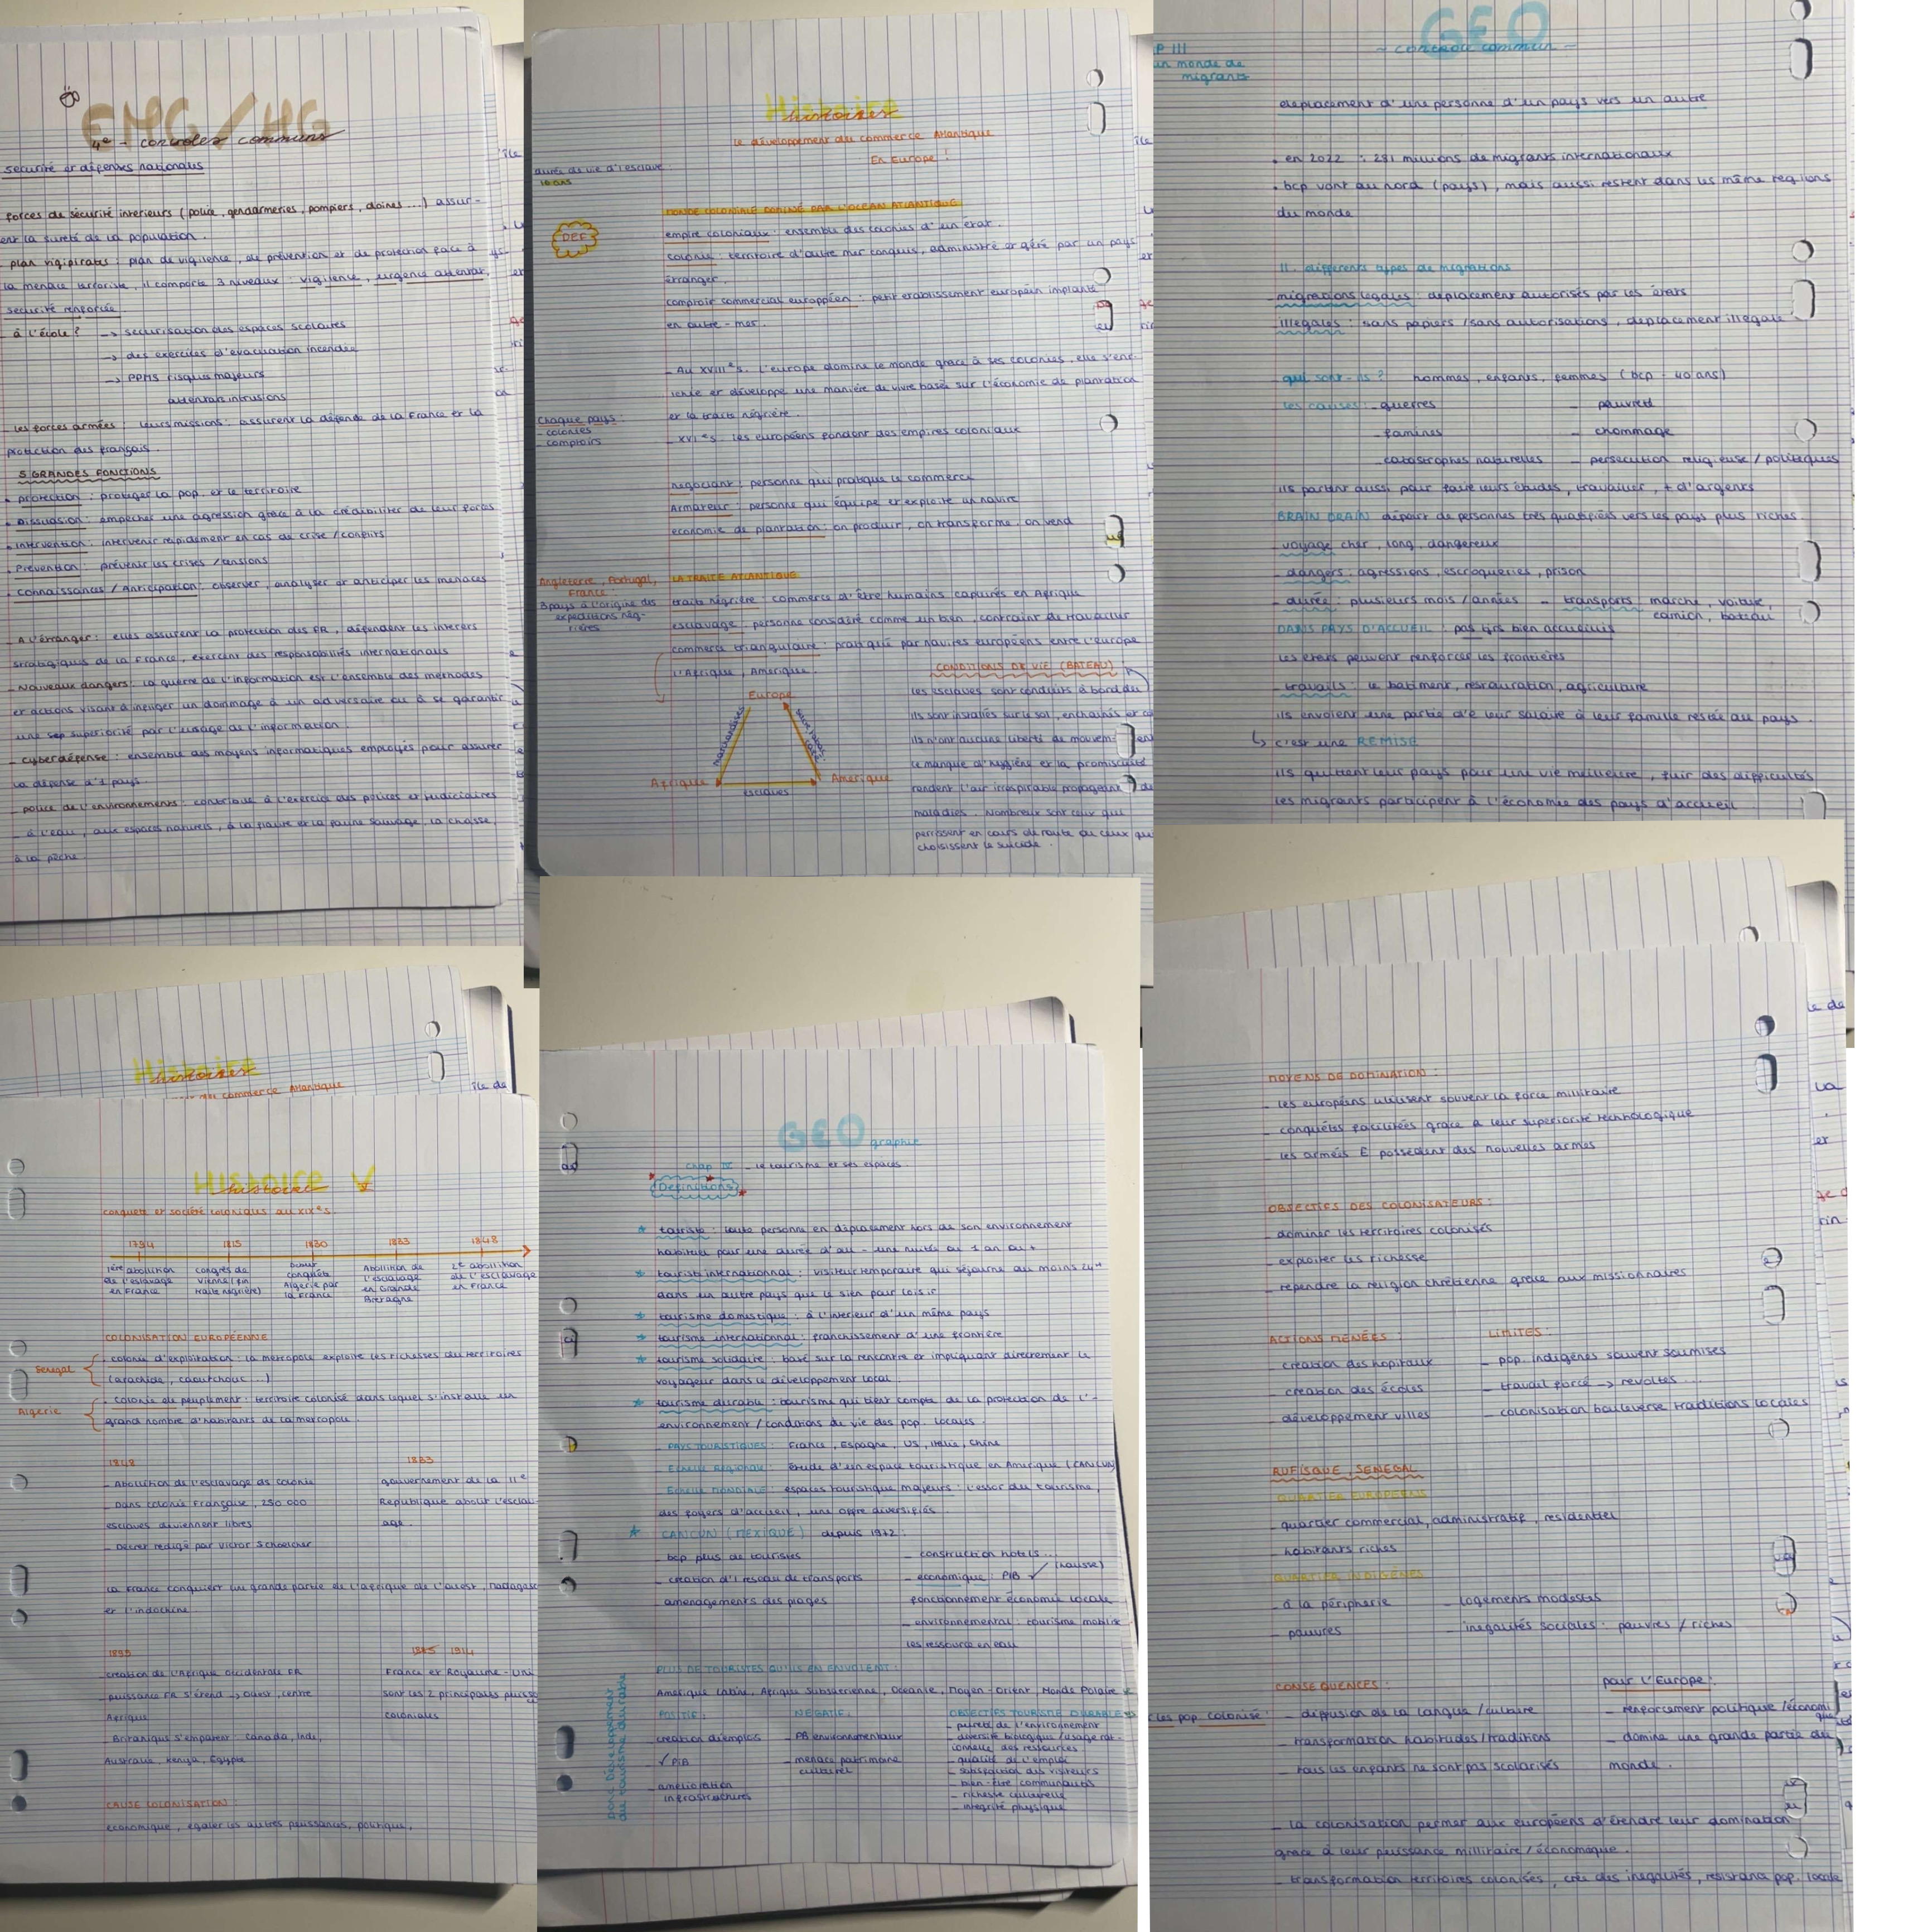 EMC/HG
4e - controles communs
securité et défenses nationales
forces de sécurité interieurs (police, gendarmeries, pompiers, doines...) assur-
ent la sureté de la population.
- plan vigipirates : plan de vigilence, de prévention et de protection face à
la menace terroriste, il comporte 3 niveaux : vigilence, urgence attentat,
securité renforcée
- à l'école ? -> securisation des espaces scolaires
-> des exercices d'evacuation incendie
-> PPMS risques majeurs
attentat intrusions
- les forces armées : leurs missions : assurent la défense de la France et la
protection des français.
5 GRANDES FONCTIONS
• protection : proteger la pop. et le territoire
• Dissuasion : empecher une agression grâce à la crédibiliter de leur forces
• intervention : intervenir rapidement en cas de crise / conflits
• Prévention : prévenir les crises / tansions
• connaissances / Anticipation : observer, analyser et anticiper les menaces
- A l'étranger : elles assurent la protection des FR, défendent les interets
stratégiques de la France, exercent des responsabilités internationals
- Nouveaux dangers : la guerre de l'information est l'ensemble des methodes
et actions visant à infliger un dommage à un adversaire ou à se garantir
une sup superiorité par l'usage de l'information.
- cyberdéfense : ensemble des moyens informatiques employés pour assurer
la défense d'1 pays.
- police de l'environnements : contribue à l'exercice des polices et judiciaires
- à l'eau, aux espaces naturels, à la flaure et la faune sauvage, la chasse,
à la pêche.
Histoire
histoires
le développement du commerce Atlantique
En Europe !
durée de vie d'1 esclave :
10 ans
MONDE COLONIALE DOMINÉ PAR L'OCEAN ATLANTIQUE
DEF
empire coloniaux : ensemble des colonies d'un état.
colonie : territoire d'outre mer conquis, administré et géré par un pays
étranger.
comptoir commercial europpéen : petit etablissement européin implanté
en outre-mer.
- Au XVIIIe s. L'europe domine le monde grâce à ses colonies, elle s'enri-
chie et développe une manière de vivre basés sur l'économie de plantation
et la traite négrière.
Chaque pays :
- colonies
- comptoirs
- XVIe s. les européens fondent des empires coloniaux
negociant : personne qui pratique le commerce
Armateur : personne qui équipe et exploite un navire
economie de plantation : on produit, on transforme, on vend
Angleterre, Portugal,
France :
3 pays à l'origine des
expeditions nég-
rières
LA TRAITE ATLANTIQUE
traite négrière : commerce d'être humains capturés en Afrique
esclavage : personne considéré comme un bien, contraint de travailler
commerce triangulaire : pratiqué par navires européens entre l'europe
l'Afrique, Amerique.
Europe
marchandises
Afrique
Amerique
esclaves
CONDITIONS DE VIE (BATEAU)
les esclaves sont conduits à bord du
ils sont installés sur le sol, enchainés et
ils n'ont aucune liberté de mouvem
le manque d'hygiène et la promiscuité
rendent l'air irrespirable propageant
maladies. Nombreux sont ceux qui
perrissent en cours de route ou ceux qui
choisissent le suicide.
GEO
- controle commun -
P III
un monde de
migrants
deplacement d'une personne d'un pays vers un autre
• en 2022 : 281 millions de migrants internationaux
• bcp vont au nord (pays), mais aussi restent dans les même regions
du monde
II. differents types de migrations
- migrations légales : deplacement autorisés par les états
- illegales : sans papiers / sans autorisations, deplacement illegale
qui sont-ils ? hommes, enfants, femmes (bcp - 40 ans)
les causes : - guerres - pauvreté
- famines - chommage
- catastrophes naturelles - persecution religieuse / politiques
ils partent aussi pour faire leurs études, travailler, + d'argents
BRAIN DRAIN départ de personnes très qualifiées vers les pays plus riches
- voyage cher, long, dangereux
- dangers : agressions, escroqueries, prison
- durée : plusieurs mois / années - transports : marche, voiture,
camion, bateau
DANS PAYS D'ACCUEIL : pas tjrs bien accueillis
les états peuvent renforcer les frontières
- travails : le batiment, restauration, agriculture
ils envoient une partie de leur salaire à leur famille restée au pays.
↳ c'est une REMISE
ils quittent leur pays pour une vie meilleure, fuir des difficultés
les migrants participent à l'économie des pays d'accueil
Histoire
histoires
commerce Atlantique
Histoire V
histoires
conquete et société coloniales au XIXe s.
1794 1815 1830 1833 1848
1ère abolition de l'esclavage en France
congrès de Vienne (fin traite négrière)
Debut conquête Algerie par la France
Abolition de l'esclavage en Grande Bretagne
2e abolition de l'esclavage en France
COLONISATION EUROPÉENNE
Senegal
- colonie d'exploitation : la metropole exploite les richesses du territoires
(arachide, caoutchouc...)
Algerie
- colonie de peuplement : territoire colonisé dans lequel s'installe un
grand nombre d'habitants de la metropole.
1848
- Abolition de l'esclavage de colonie
- Dans colonie Française, 250 000
esclaves deviennent libres
- Décret redigé par Victor Schoelcher
1833
gouvernement de la IIe
Republique abolit l'esclav-
age.
la France conquiert une grande partie de l'afrique de l'ouest, Madagasc
et l'indochine.
1895
- creation de l'Afrique occidentale FR
- puissance FR s'étend -> ouest, centre
Afrique
- Britaniques s'emparent : Canada, Inde,
Australie, Kenya, Egypte
1914
France et Royaume-Uni
sont les 2 principales puiss
coloniales
CAUSE COLONISATION :
economique, egaler les autres puissances, politique.
GEO graphie
Chap IV - le tourisme et ses espaces.
Definitions
* touriste : toute personne en déplacement hors de son environnement
habituel pour une durée d'au - une nuitée ou 1 an au +
* touriste internationnal : visiteur temporaire qui séjourne au moins 24H
dans un autre pays que le sien pour loisir
* tourisme domestique : à l'interieur d'un même pays
* tourisme internationnal : franchissement d'une frontière
* tourisme solidaire : basé sur la rencontre et impliquant directement le
voyageur dans le développement local.
* tourisme durable : tourisme qui tient compte de la protection de l'-
environnement / conditions de vie des pop. locales.
PAYS TOURISTIQUES : France, Espagne, US, Italie, Chine
ECHELLE REGIONALE : étude d'un espace touristique en Amerique (CANCUN)
ECHELLE MONDIALE : espaces touristique majeurs : l'essor du tourisme,
des foyers d'accueil, une offre diversifiés.
* CANCUN (MEXIQUE) depuis 1972 :
- bcp plus de touristes
- creation d'1 reseau de transports
- amenagements des plages
- construction hotels...
- economique : PIB (hausse)
fonctionnement économie locale
- environnemental : tourisme mobilise
les ressource en eau
PLUS DE TOURISTES QU'ILS EN ENVOIENT :
Amerique latine, Afrique Subsaérienne, Oceanie, Moyen-Orient, Monde Polaire
POSITIF :
- creation d'emplois
- PIB
- amelioration
infrastructures
NEGATIF :
- PB environnementaux
- menace patrimoine
culturel
OBJECTIFS TOURISME DURABLE
- pureté de l'environnement
- diversité biologique / usage rat-
ionnelle des ressources
- qualité de l'emploi
- satisfaction des visiteurs
- bien-être communautés
- richesse culturelle
- intégrité physique
Donc Développement
du tourisme durable
MOYENS DE DOMINATION :
- les européens utilisent souvent la force millitaire
- conquêtes facilitées grâce à leur superiorité technologique
- les armées E possèdent des nouvelles armes
OBJECTIFS DES COLONISATEURS :
- dominer les territoires colonisés
- exploiter les richesse
- rependre la religion chrétienne grâce aux missionnaires
ACTIONS MENÉES :
- création des hopitaux
- creation des écoles
- développement villes
LIMITES :
- pop. indigènes souvent soumises
- travail forcé -> revoltes...
- colonisation bouleverse traditions locales
RUFISQUE, SENEGAL
QUARTIER EUROPEENS
- quartier commercial, administratif, residentiel
- habitants riches
QUARTIER INDIGÈNES
- à la périphérie - logements modestes
- pauvres - inegalités sociales : pauvres / riches
CONSEQUENCES : pour l'Europe :
les pop colonisé : - diffusion de la langue / culture
- transformation habitudes / traditions
- tous les enfants ne sont pas scolarisés
- renforcement politique / économi
que
- domine une grande partie du
monde.
- la colonisation permet aux européens d'étendre leur domination
grace à leur puissance millitaire / économique.
- transformation territoires colonisés, crée des inegalités, resistance pop. locale